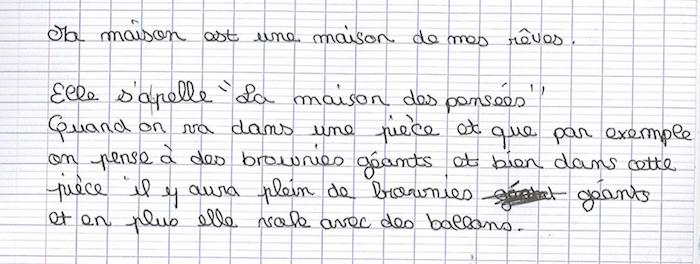 Ma maison est une maison de mes rêves.
Elle s'apelle "La maison des pensées"
Quand on va dans une pièce et que par exemple
on pense à des brownies géants et bien dans cette
pièce il y aura plein de brownies géants
et en plus elle vole avec des ballons.